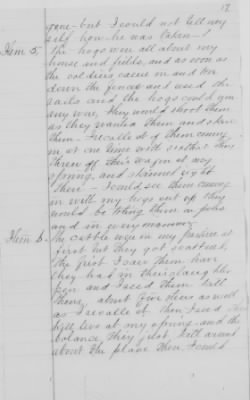 gone - but I could not tell my
self how he was taken -
Item 5. The hogs were all about my
house and fields, and as soon as
the soldiers came in and tore
down the fences and used the
rails and the hogs could go
any where, they would shoot them
as they wanted them and skin
them - I recollect of them coming
in at one time with that they
threw off their wagon at my
spring, and skinned right
there - I could see them coming
in with my hogs cut up they
would be them on poles
and in every manner
Item 6. The cattle were in my pasture at
first but they got scattered,
the first I saw them have
they had in their slaughter
pen and I saw them kill
them, about five there as well
as I recollect of then I saw them
kill two at my spring - and the
balance, they just kill around
about the place there I could